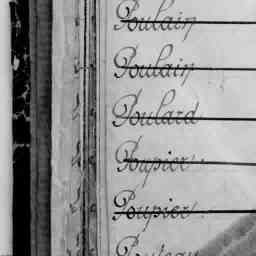 Poulain
Poulain
Poulard
Poupier
Poupier